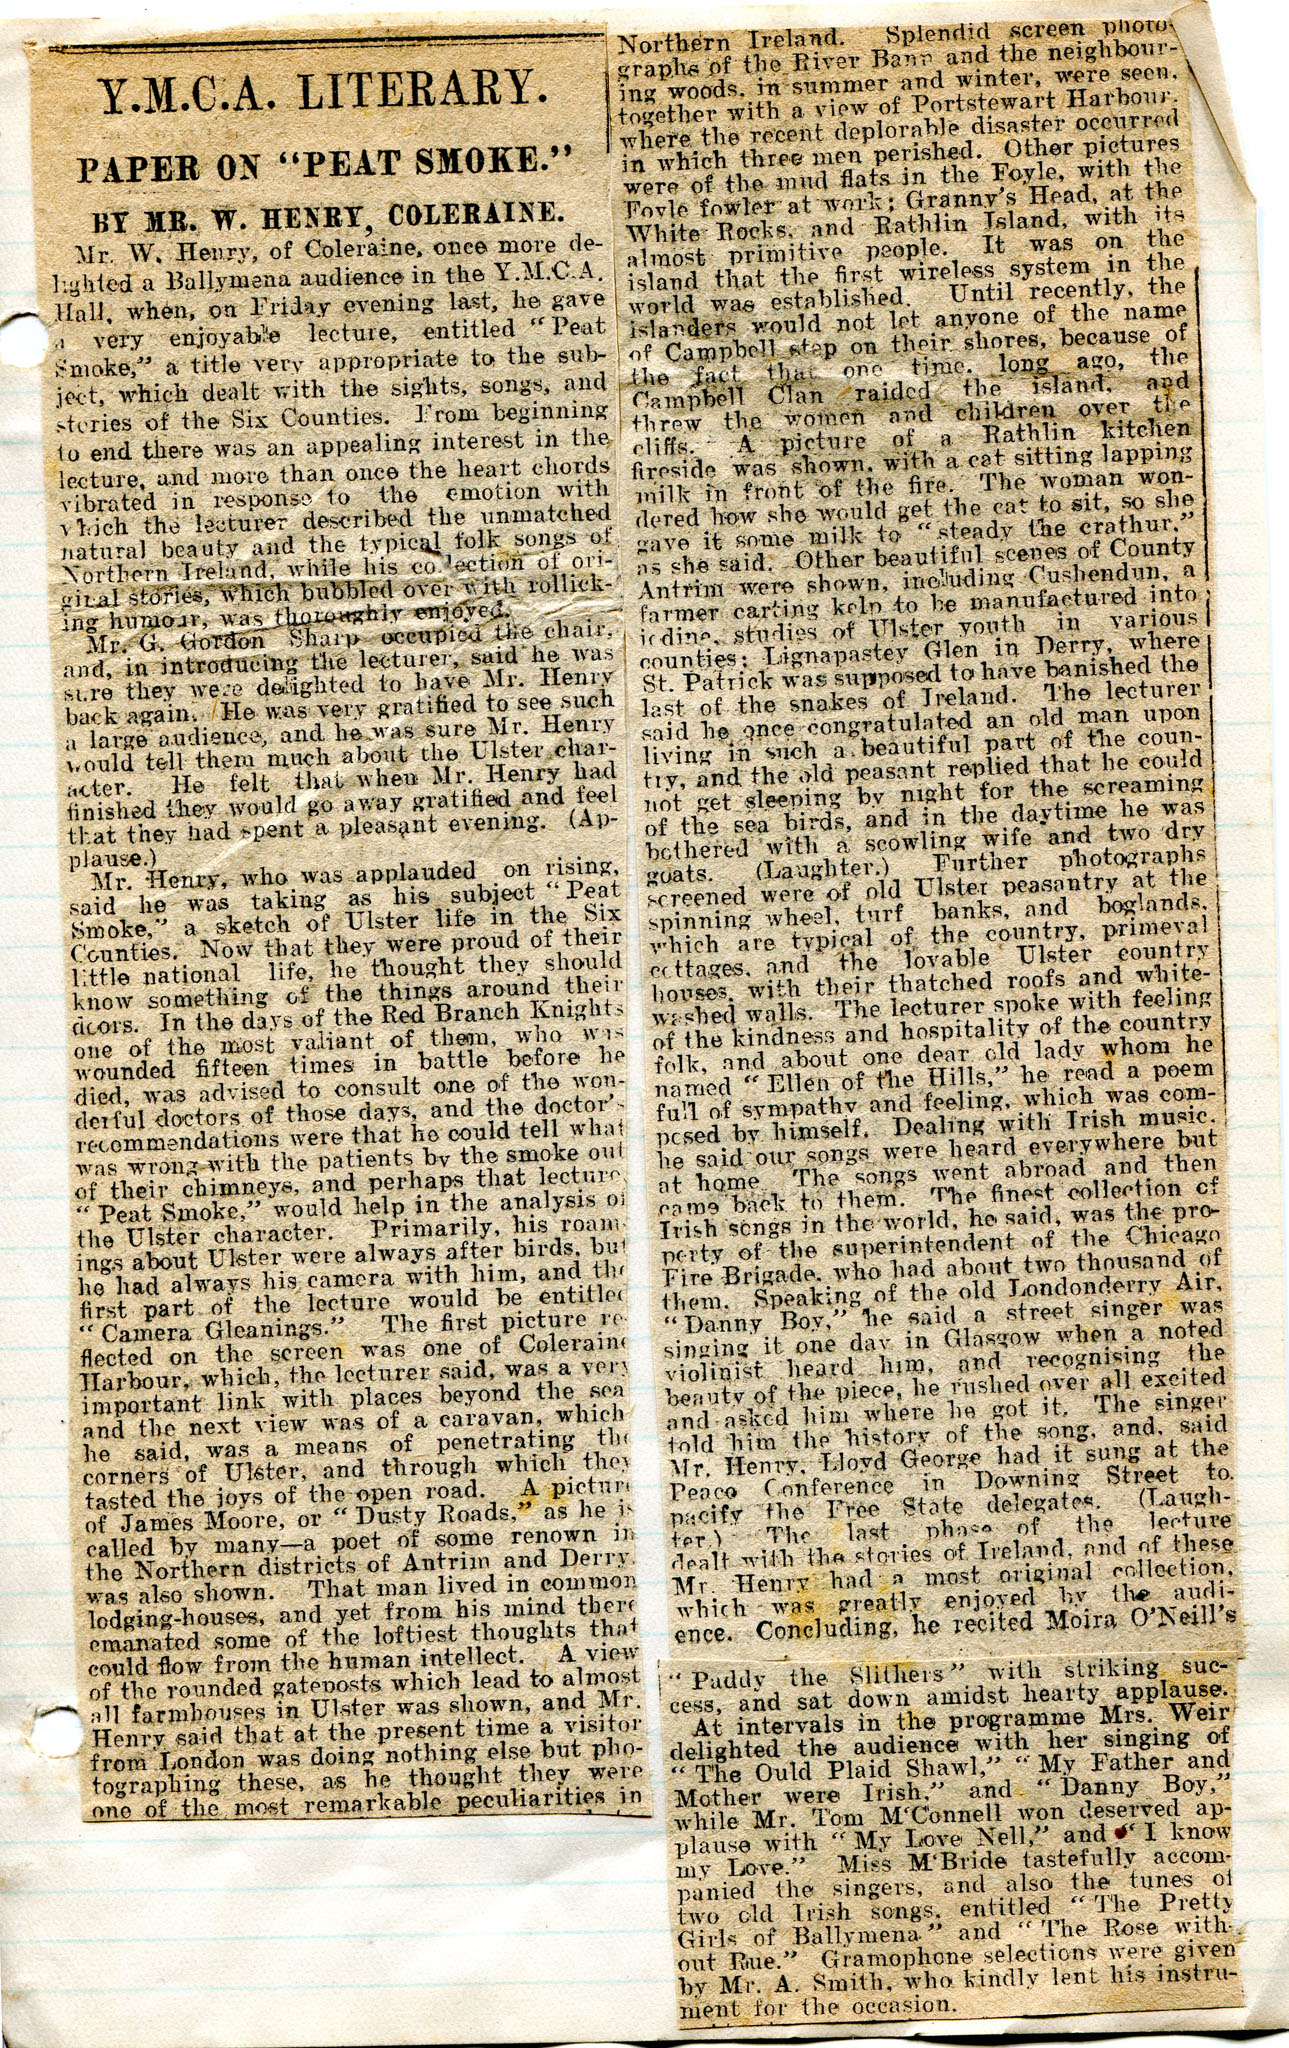 Y.M.C.A. LITERARY.
PAPER ON "PEAT SMOKE."
BY MR. W. HENRY, COLERAINE.
Mr. W. Henry, of Coleraine, once more de-
lighted a Ballymena audience in the Y.M.C.A.
Hall, when, on Friday evening last, he gave
a very enjoyable lecture, entitled "Peat
Smoke," a title very appropriate to the sub-
ject, which dealt with the sights, songs, and
stories of the Six Counties. From beginning
to end there was an appealing interest in the
lecture, and more than once the heart chords
vibrated in response to the emotion with
which the lecturer described the unmatched
natural beauty and the typical folk songs of
Northern Ireland, while his collection of ori-
ginal stories, which bubbled over with rollick-
ing humour, was thoroughly enjoyed.
Mr. G. Gordon Sharp occupied the chair,
and, in introducing the lecturer, said he was
sure they were delighted to have Mr. Henry
back again. He was very gratified to see such
a large audience, and he was sure Mr. Henry
would tell them much about the Ulster char-
acter. He felt that when Mr. Henry had
finished they would go away gratified and feel
that they had spent a pleasant evening. (Ap-
plause.)
Mr. Henry, who was applauded on rising,
said he was taking as his subject "Peat
Smoke," a sketch of Ulster life in the Six
Counties. Now that they were proud of their
little national life, he thought they should
know something of the things around their
doors. In the days of the Red Branch Knights
one of the most valiant of them, who was
wounded fifteen times in battle before he
died, was advised to consult one of the won-
derful doctors of those days, and the doctor's
recommendations were that he could tell what
was wrong with the patients by the smoke out
of their chimneys, and perhaps that lecture,
"Peat Smoke," would help in the analysis of
the Ulster character. Primarily, his roam-
ings about Ulster were always after birds, but
he had always his camera with him, and the
first part of the lecture would be entitled
"Camera Gleanings." The first picture re-
flected on the screen was one of Coleraine
Harbour, which, the lecturer said, was a very
important link with places beyond the sea
and the next view was of a caravan, which
he said, was a means of penetrating the
corners of Ulster, and through which they
tasted the joys of the open road. A picture
of James Moore, or "Dusty Roads," as he is
called by many—a poet of some renown in
the Northern districts of Antrim and Derry,
was also shown. That man lived in common
lodging-houses, and yet from his mind there
emanated some of the loftiest thoughts that
could flow from the human intellect. A view
of the rounded gateposts which lead to almost
all farmhouses in Ulster was shown, and Mr.
Henry said that at the present time a visitor
from London was doing nothing else but pho-
tographing these, as he thought they were
one of the most remarkable peculiarities in
Northern Ireland. Splendid screen photo-
graphs of the River Bann and the neighbour-
ing woods, in summer and winter, were seen,
together with a view of Portstewart Harbour,
where the recent deplorable disaster occurred
in which three men perished. Other pictures
were of the mud flats in the Foyle, with the
Foyle fowler at work; Granny's Head, at the
White Rocks, and Rathlin Island, with its
almost primitive people. It was on the
island that the first wireless system in the
world was established. Until recently, the
islanders would not let anyone of the name
of Campbell step on their shores, because of
the fact that one time, long ago, the
Campbell Clan raided the island, and
threw the women and children over the
cliffs. A picture of a Rathlin kitchen
fireside was shown, with a cat sitting lapping
milk in front of the fire. The woman won-
dered how she would get the cat to sit, so she
gave it some milk to "steady the crathur,"
as she said. Other beautiful scenes of County
Antrim were shown, including Cushendun, a
farmer carting kelp to be manufactured into
iodine, studies of Ulster youth in various
counties; Lignapastey Glen in Derry, where
St. Patrick was supposed to have banished the
last of the snakes of Ireland. The lecturer
said he once congratulated an old man upon
living in such a beautiful part of the coun-
try, and the old peasant replied that he could
not get sleeping by night for the screaming
of the sea birds, and in the daytime he was
bothered with a scowling wife and two dry
goats. (Laughter.) Further photographs
screened were of old Ulster peasantry at the
spinning wheel, turf banks, and boglands,
which are typical of the country, primeval
cottages, and the lovable Ulster country
houses, with their thatched roofs and white-
washed walls. The lecturer spoke with feeling
of the kindness and hospitality of the country
folk, and about one dear old lady whom he
named "Ellen of the Hills," he read a poem
full of sympathy and feeling, which was com-
posed by himself. Dealing with Irish music,
he said our songs were heard everywhere but
at home. The songs went abroad and then
came back to them. The finest collection of
Irish songs in the world, he said, was the pro-
perty of the superintendent of the Chicago
Fire Brigade, who had about two thousand of
them. Speaking of the old Londonderry Air,
"Danny Boy," he said a street singer was
singing it one day in Glasgow when a noted
violinist heard him, and recognising the
beauty of the piece, he rushed over all excited
and asked him where he got it. The singer
told him the history of the song, and, said
Mr. Henry, Lloyd George had it sung at the
Peace Conference in Downing Street to
pacify the Free State delegates. (Laugh-
ter.) The last phase of the lecture
dealt with the stories of Ireland, and of these
Mr. Henry had a most original collection,
which was greatly enjoyed by the audi-
ence. Concluding, he recited Moira O'Neill's
"Paddy the Slithers" with striking suc-
cess, and sat down amidst hearty applause.
At intervals in the programme Mrs. Weir
delighted the audience with her singing of
"The Ould Plaid Shawl," "My Father and
Mother were Irish," and "Danny Boy,"
while Mr. Tom M'Connell won deserved ap-
plause with "My Love Nell," and "I know
my Love." Miss M'Bride tastefully accom-
panied the singers, and also the tunes of
two old Irish songs, entitled "The Pretty
Girls of Ballymena" and "The Rose with-
out Rue." Gramophone selections were given
by Mr. A. Smith, who kindly lent his instru-
ment for the occasion.